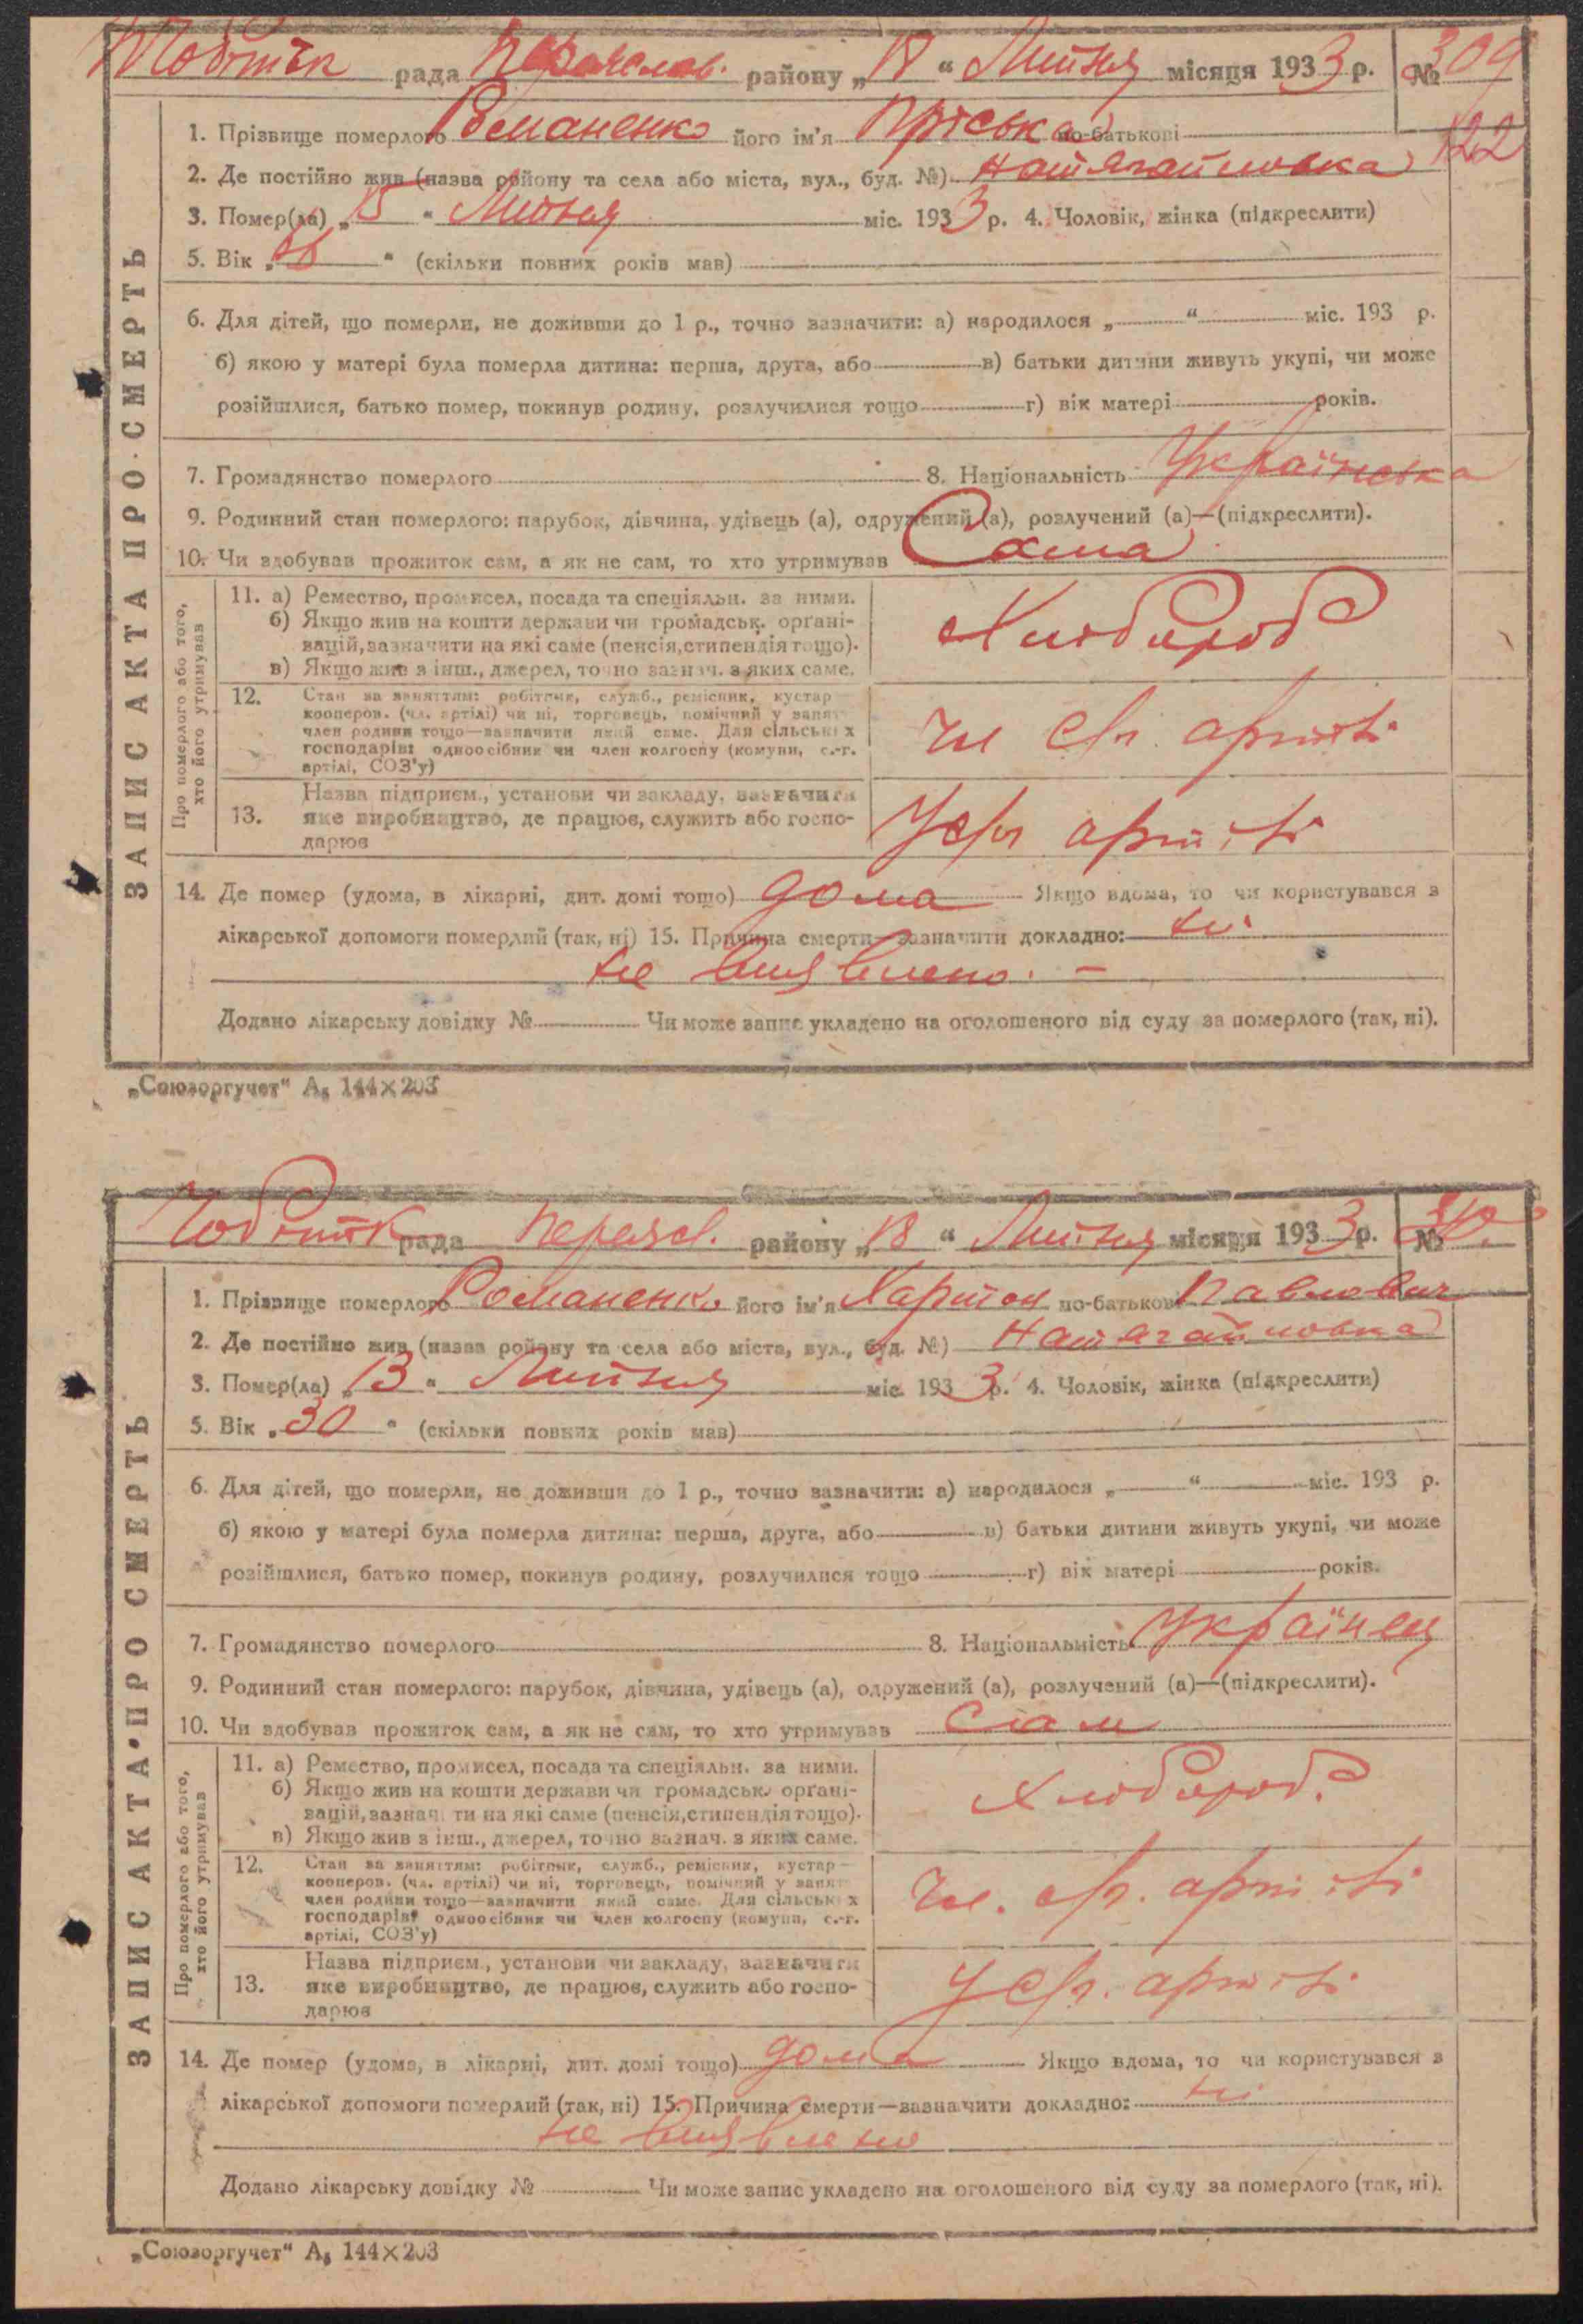 рада Переяслав. району „18“ Липня місяця 1933 р. № 309
122
1. Прізвище померлого Романенко його ім'я Пріська по-батькові
2. Де постійно жив (назва ройону та села або міста, вул., буд. №)
3. Помер(ла) „15“ Липня міс. 1933 р. 4. Чоловік, жінка (підкреслити)
5. Вік „ “ (скільки повних років мав)
6. Для дітей, що померли, не доживши до 1 р., точно зазначити: а) народилося „ “ міс. 193 р.
б) якою у матері була померла дитина: перша, друга, або в) батьки дитини живуть укупі, чи може
розійшлися, батько помер, покинув родину, розлучилися тощо г) вік матері років.
7. Громадянство померлого 8. Національність Українська
9. Родинний стан померлого: парубок, дівчина, удівець (а), одружений (а), розлучений (а)—(підкреслити).
10. Чи здобував прожиток сам, а як не сам, то хто утримував Сама
ЗАПИС АКТА ПРО СМЕРТЬ
Про померлого або того, хто його утримував
11. а) Ремество, промисел, посада та спеціяльн. за ними.
б) Якщо жив на кошти держави чи громадськ. орґані-
зацій, зазначити на які саме (пенсія, стипендія тощо).
в) Якщо жив з інш., джерел, точно зазнач. з яких саме.
Хлібороб
12. Стан за заняттям: робітник, служб., ремісник, кустар
кооперов. (чл. артілі) чи ні, торговець, помічний у занят.
член родини тощо—зазначити який саме. Для сільських
господарів: одноосібник чи член колгоспу (комуни, с.-г.
артілі, СОЗ'у)
чл с/г. артілі
13. Назва підприєм., установи чи закладу, зазначити
яке виробництво, де працює, служить або госпо-
дарює
У с/г артілі
14. Де помер (удома, в лікарні, дит. домі тощо) дома Якщо вдома, то чи користувався з
лікарської допомоги померлий (так, ні) 15. Причина смерти—зазначити докладно: ні
не виявлено. —
Додано лікарську довідку № Чи може запис укладено на оголошеного від суду за померлого (так, ні).
„Союзоргучет“ А₅ 144×203
рада Переясл. району „18“ Липня місяця 1933 р. № 310
1. Прізвище померлого Романенко його ім'я Харитон по-батькові Павлович
2. Де постійно жив (назва ройону та села або міста, вул., буд. №)
3. Помер(ла) „13“ Липня міс. 1933 р. 4. Чоловік, жінка (підкреслити)
5. Вік „30“ (скільки повних років мав)
6. Для дітей, що померли, не доживши до 1 р., точно зазначити: а) народилося „ “ міс. 193 р.
б) якою у матері була померла дитина: перша, друга, або в) батьки дитини живуть укупі, чи може
розійшлися, батько помер, покинув родину, розлучилися тощо г) вік матері років.
7. Громадянство померлого 8. Національність Українец
9. Родинний стан померлого: парубок, дівчина, удівець (а), одружений (а), розлучений (а)—(підкреслити).
10. Чи здобував прожиток сам, а як не сам, то хто утримував Сам
ЗАПИС АКТА ПРО СМЕРТЬ
Про померлого або того, хто його утримував
11. а) Ремество, промисел, посада та спеціяльн. за ними.
б) Якщо жив на кошти держави чи громадськ. орґані-
зацій, зазначити на які саме (пенсія, стипендія тощо).
в) Якщо жив з інш., джерел, точно зазнач. з яких саме.
Хлібороб.
12. Стан за заняттям: робітник, служб., ремісник, кустар
кооперов. (чл. артілі) чи ні, торговець, помічний у занят.
член родини тощо—зазначити який саме. Для сільських
господарів: одноосібник чи член колгоспу (комуни, с.-г.
артілі, СОЗ'у)
чл. с/г. артілі
13. Назва підприєм., установи чи закладу, зазначити
яке виробництво, де працює, служить або госпо-
дарює
У с/г. артілі
14. Де помер (удома, в лікарні, дит. домі тощо) дома Якщо вдома, то чи користувався з
лікарської допомоги померлий (так, ні) 15. Причина смерти—зазначити докладно: ні
не виявлено
Додано лікарську довідку № Чи може запис укладено на оголошеного від суду за померлого (так, ні).
„Союзоргучет“ А₅ 144×203